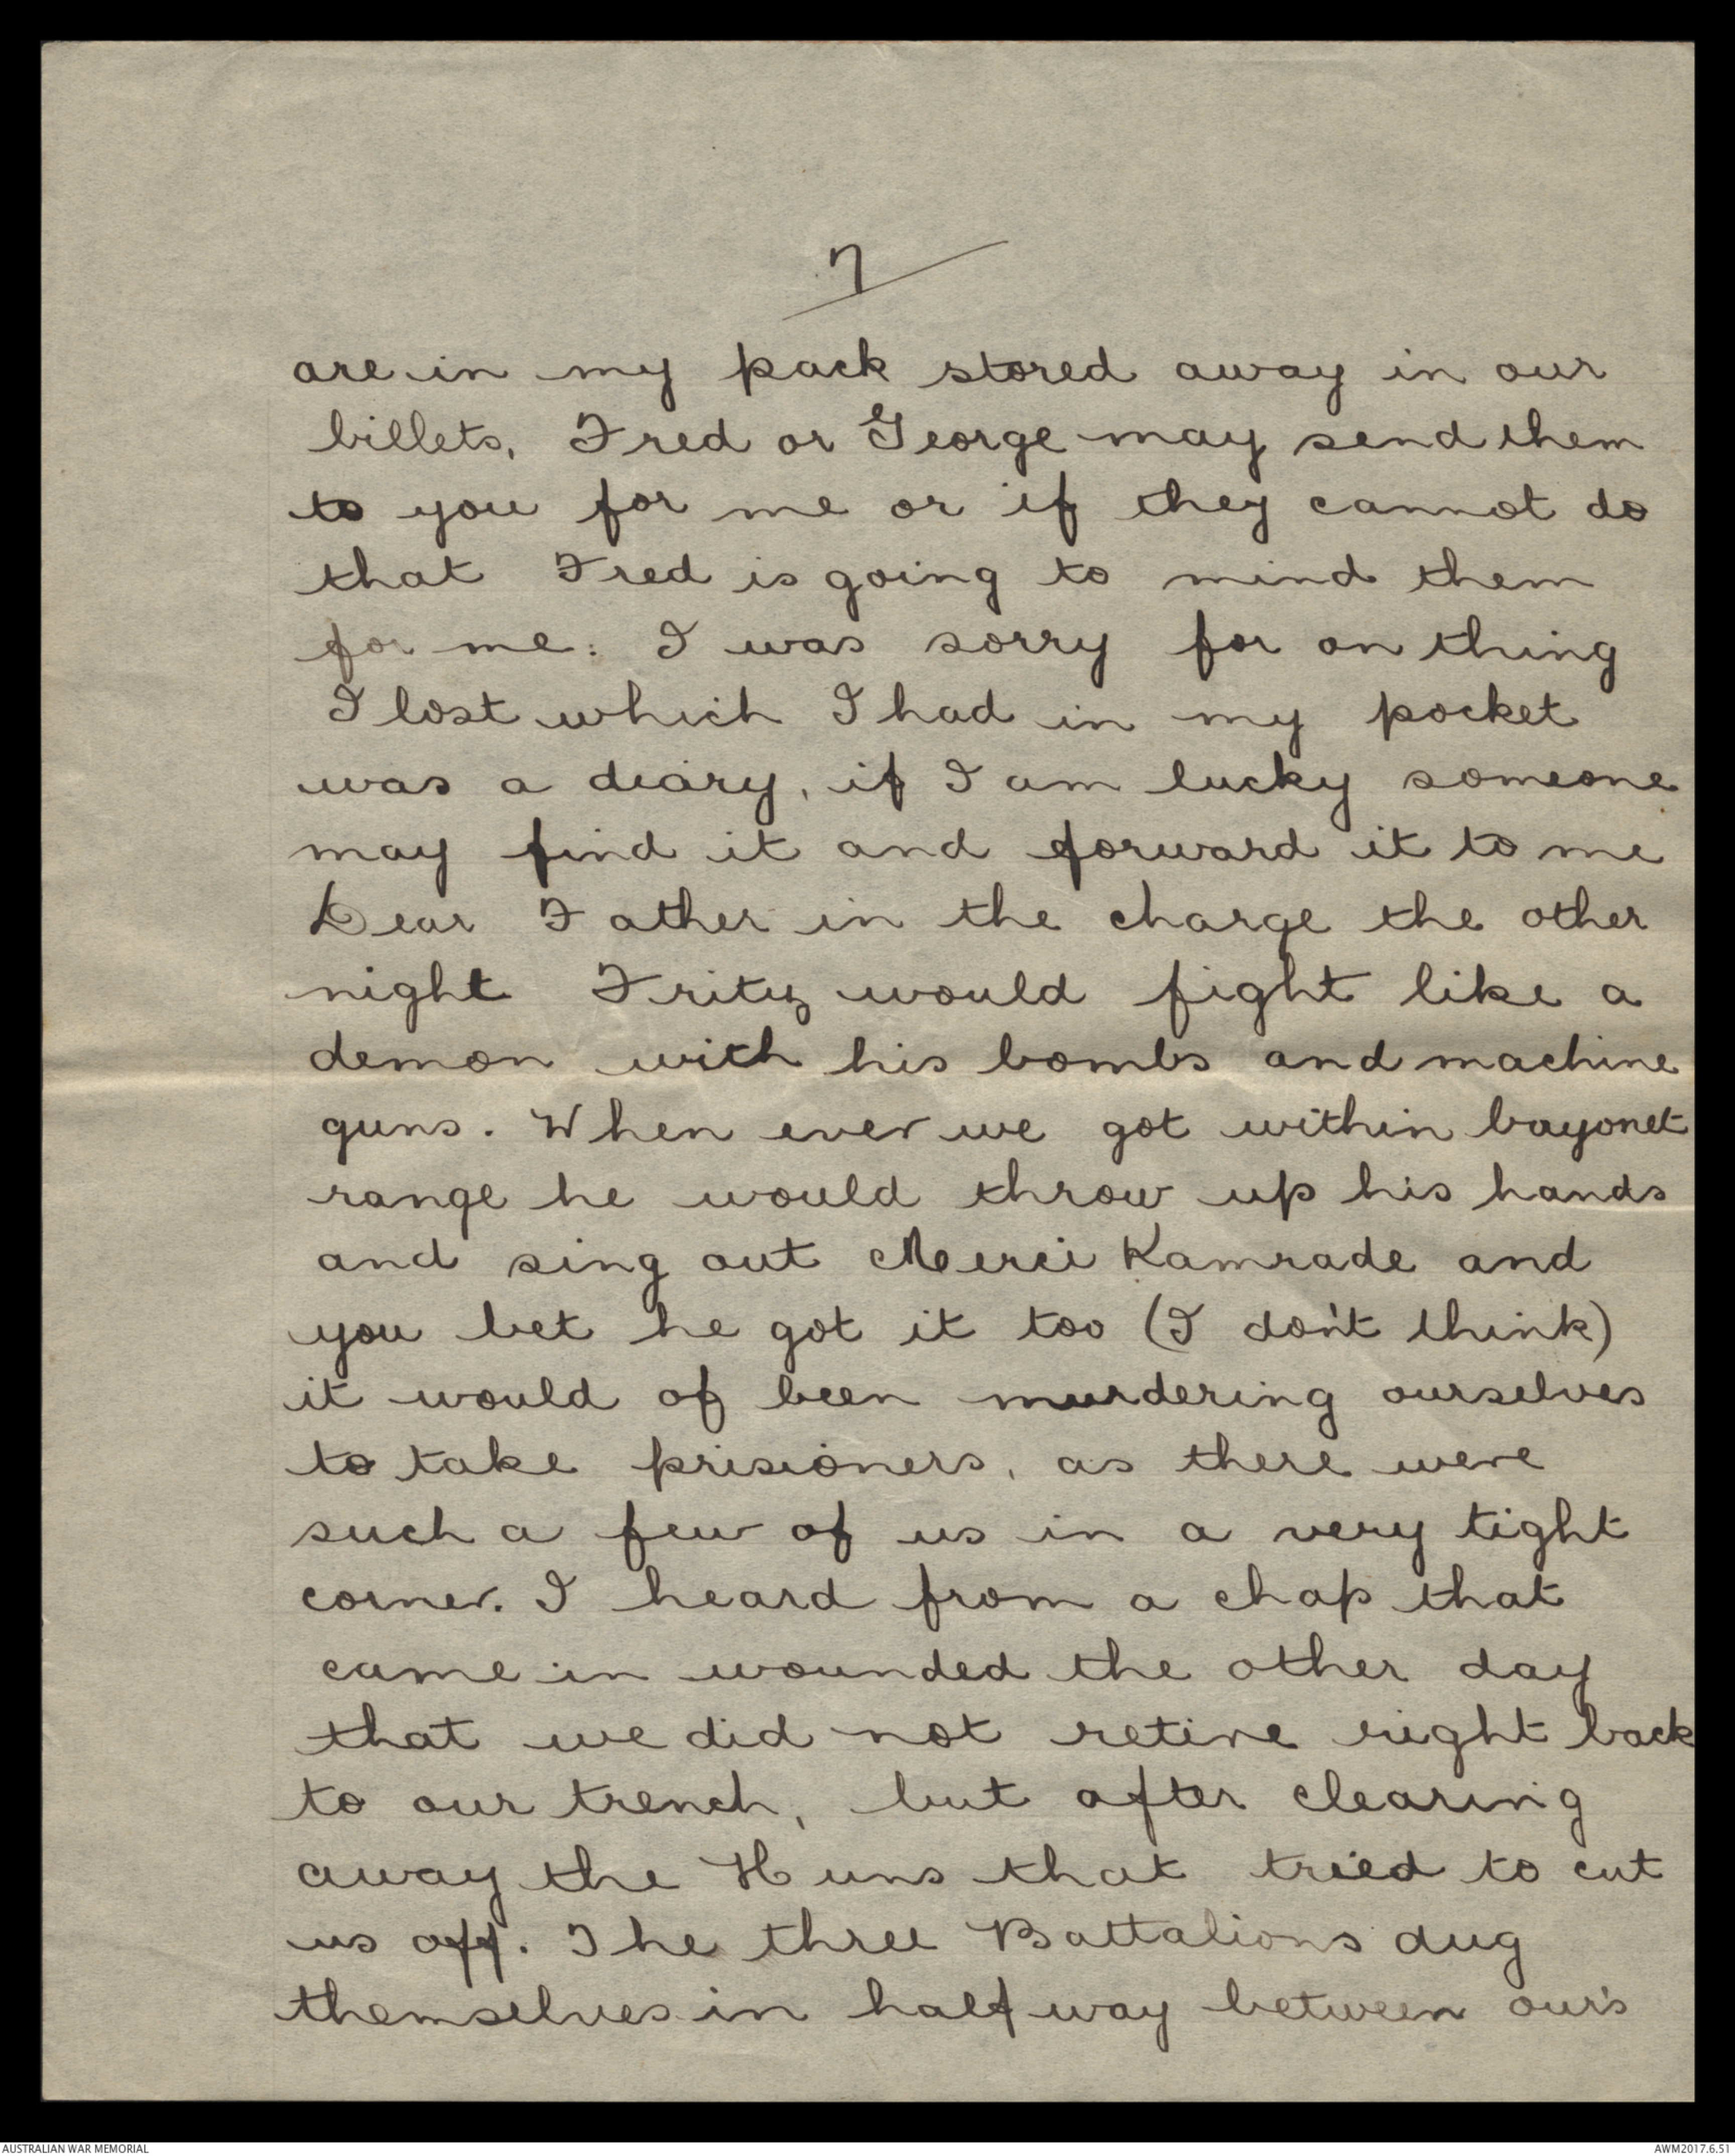 7
are in my pack stored away in our
billets, Fred or George may send them
to you for me or if they cannot do
that Fred is going to mind them
for me: I was sorry for on thing
I lost which I had in my pocket
was a diary, if I am lucky someone
may find it and forward it to me
Dear Father in the charge the other
night Fritz would fight like a
demon with his bombs and machine
guns. When ever we got within bayonet
range he would throw up his hands
and sing out Merci Kamrade and
you bet he got it too (I don't think)
it would of been murdering ourselves
to take prisioners, as there were
such a few of us in a very tight
corner. I heard from a chap that
came in wounded the other day
that we did not retire right back
to our trench, but after clearing
away the Huns that tried to cut
us off. The three Battalions dug
themselves in half way between our's
AUSTRALIAN WAR MEMORIAL
AWM2017.6.51